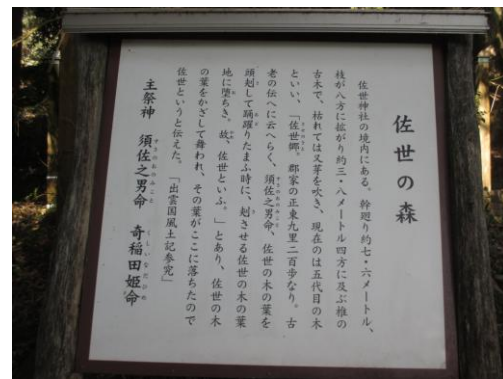 佐世の森
佐世神社の境内にある。幹廻り約七・六メートル、
枝が八方に拡がり約三・八メートル四方に及ぶ椎の
古木で、枯れては又芽を吹き、現在のは五代目の木
といい、「佐世郷。郡家の正東九里二百歩なり。古
老の伝へに云へらく、須佐之男命、佐世の木の葉を
頭刺して踊躍りたまふ時に、刺させる佐世の木の葉
地に堕ちき。故、佐世といふ。」とあり、佐世の木
の葉をかざして舞われ、その葉がここに落ちたので
佐世というと伝えた。「出雲国風土記参究」
主祭神 須佐之男命 奇稲田姫命